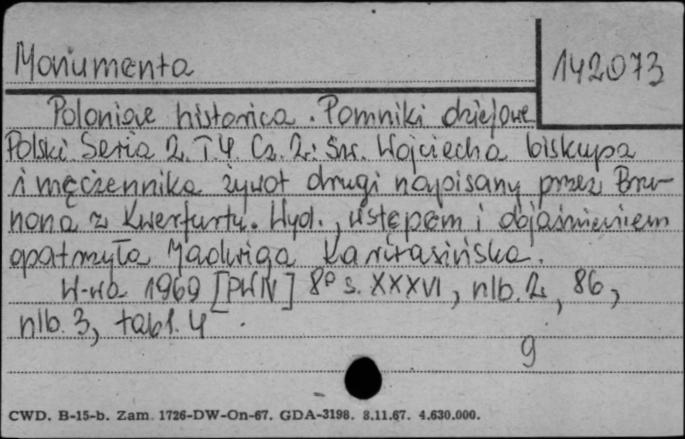 Monumenta
142073
Poloniae historica. Pomniki dziejowe
Polski. Seria 2. T. 4. Cz. 2: Św. Wojciecha biskupa
i męczennika żywot drugi napisany przez Bru-
nona z Kwerfurtu. Wyd., wstępem i objaśnieniem
opatrzyła Jadwiga Karwasińska.
W-wa 1969 [PWN] 8° s. XXXVI, nlb. 2, 86,
nlb. 3, tabl. 4.
9
CWD. B-15-b. Zam. 1726-DW-On-67. GDA-3198. 8.11.67. 4.630.000.